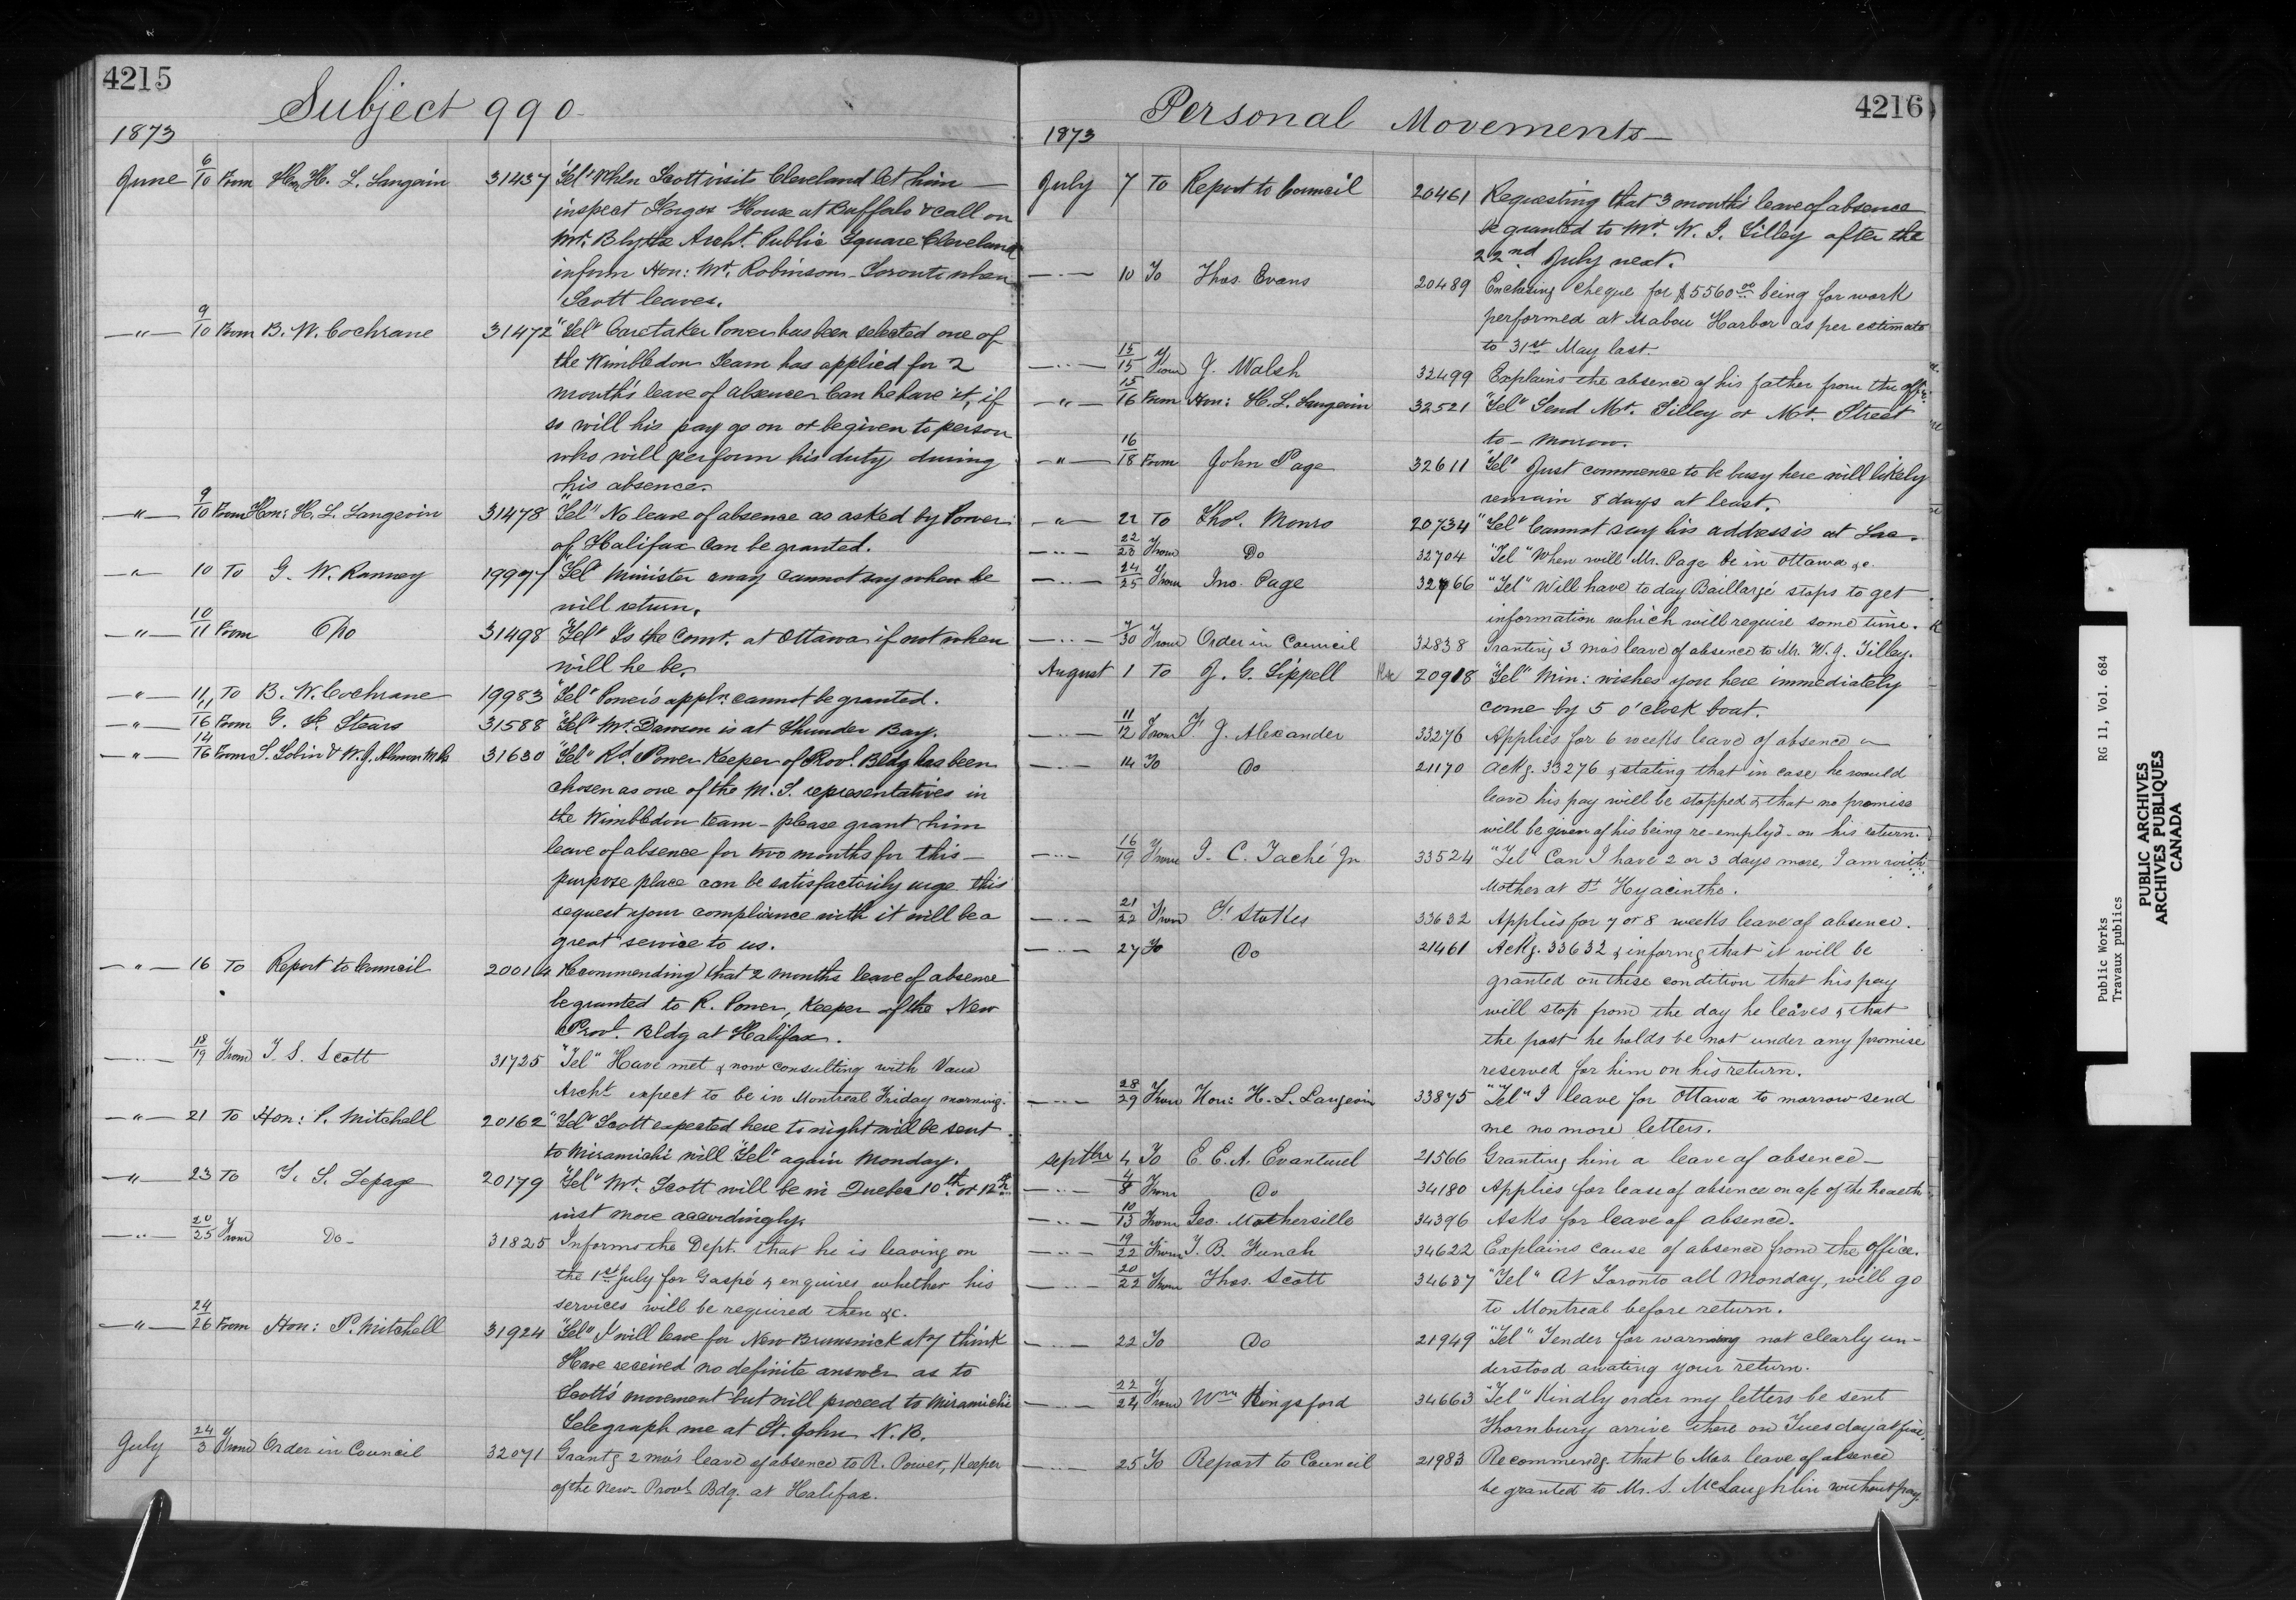 4215
Subject 990.
1873
June 6/10 From Hon H. L. Langevin 31437 "Tel" When Scott visits Cleveland let him
inspect House at Buffalo & call on
Mr. Blythe Archt. Public Square Cleveland
inform Hon: Mr. Robinson Toronto when
Scott leaves.
—"— 9/10 From B. W. Cochrane 31472 "Tel" Caretaker Power has been selected one of
the Wimbledon Team has applied for 2
month's leave of absence Can he have it, if
so will his pay go on or be given to person
who will perform his duty during
his absence.
—"— 9/10 From Hon: H. L. Langevin 31478 "Tel" No leave of absence as asked by Power
of Halifax can be granted.
—"— 10 To G. W. Ranney 19977 "Tel" Minister away cannot say when he
will return.
—"— 10/11 From Do 31498 "Tel" Is the Comr. at Ottawa if not when
will he be.
—"— 11 To B. W. Cochrane 19983 "Tel" Power's appln. cannot be granted.
—"— 11/16 From G. Stears 31588 "Tel" Mr. Dawson is at Thunder Bay.
—"— 14/16 From S. Tobin & W. J. Almon M.Ps 31630 "Tel" Rd. Power Keeper of Provl. Bldg has been
chosen as one of the M. S. representatives in
the Wimbledon team – please grant him
leave of absence for two months for this
purpose place can be satisfactorily urge this
request your compliance with it will be a
great service to us.
—"— 16 To Report to Council 20014 Recommending that 2 months leave of absence
be granted to R. Power, Keeper of the New
Provl. Bldg at Halifax.
—"— 18/19 From T. S. Scott 31725 "Tel" Have met & now consulting with Vaux
Archt expect to be in Montreal Friday morning.
—"— 21 To Hon: P. Mitchell 20162 "Tel" Scott expected here to night will be sent
to Miramichi will "Tel" again Monday.
—"— 23 To T. S. Lepage 20179 "Tel" Mr. Scott will be in Quebec 10th or 12th
inst move accordingly.
—"— 20/25 From Do 31825 Informs the Dept. that he is leaving on
the 1st July for Gaspé & enquires whether his
services will be required then &c.
—"— 24/26 From Hon: P. Mitchell 31924 "Tel" I will leave for New Brunswick at 7 think
Have received no definite answer as to
Scott's movement but will proceed to Miramichi
Telegraph me at St. John N. B.
July 24/3 From Order in Council 32071 Grantg 2 mo's leave of absence to R. Power, Keeper
of the New Provl Bdg. at Halifax.
4216
Personal Movements
1873
July 7 To Report to Council 20461 Requesting that 3 months leave of absence
be granted to Mr. W. J. Tilley after the
22nd July next.
—"— 10 To Thos. Evans 20489 Enclosing cheque for $5560.00 being for work
performed at Mabou Harbor as per estimate
to 31st May last.
—"— 15/15 From J. Walsh 32499 Explains the absence of his father from the offe.
—"— 15/16 From Hon: H. L. Langevin 32521 "Tel" Send Mr. Tilley or Mr. Street
to-morrow.
—"— 16/18 From John Page 32611 "Tel" Just commence to be busy here will likely
remain 8 days at least.
—"— 22 To Thos. Monro 20734 "Tel" Cannot say his address is at
—"— 22/23 From Do 32704 "Tel" When will Mr. Page be in Ottawa &c.
—"— 24/25 From Jno. Page 32766 "Tel" Will have to day Baillargé stops to get
information which will require some time.
—"— 7/30 From Order in Council 32838 Granting 3 mo's leave of absence to Mr. W. J. Tilley.
August 1 To J. G. Sippell 20918 "Tel" Min: wishes you here immediately
come by 5 o'clock boat.
—"— 11/12 From F. J. Alexander 33276 Applies for 6 weeks leave of absence
—"— 14 To Do 21170 Ackg. 33276 & stating that in case he would
leave his pay will be stopped & that no promise
will be given of his being re-employd on his return.
—"— 16/19 From J. C. Taché Jr 33524 "Tel" Can I have 2 or 3 days more, I am with
Mother at St Hyacinthe.
—"— 21/22 From F. Stokes 33632 Applies for 7 or 8 weeks leave of absence.
—"— 27 To Do 21461 Ackg. 33632 & informg that it will be
granted on these condition that his pay
will stop from the day he leaves & that
the post he holds be not under any promise
reserved for him on his return.
—"— 28/29 From Hon: H. L. Langevin 33875 "Tel" I leave for Ottawa to morrow send
me no more letters.
Septbr 4 To E. E. A. Evanturel 21566 Granting him a leave of absence
—"— 4/8 From Do 34180 Applies for leave of absence on a/c of the health
—"— 10/13 From Geo. Mothersille 34396 Asks for leave of absence.
—"— 19/22 From T. B. French 34622 Explains cause of absence from the office.
—"— 20/22 From Thos. Scott 34637 "Tel" At Toronto all Monday, will go
to Montreal before return.
—"— 22 To Do 21949 "Tel" Tender for warming not clearly un-
derstood awating your return.
—"— 22/24 From Wm Kingsford 34663 "Tel" Kindly order my letters be sent
Thornbury arrive there on Tuesday at five.
—"— 25 To Report to Council 21983 Recommendg that 6 Mos. leave of absence
be granted to Mr. S. McLaughlin without pay.
Public Works RG 11, Vol. 684
Travaux publics
PUBLIC ARCHIVES
ARCHIVES PUBLIQUES
CANADA